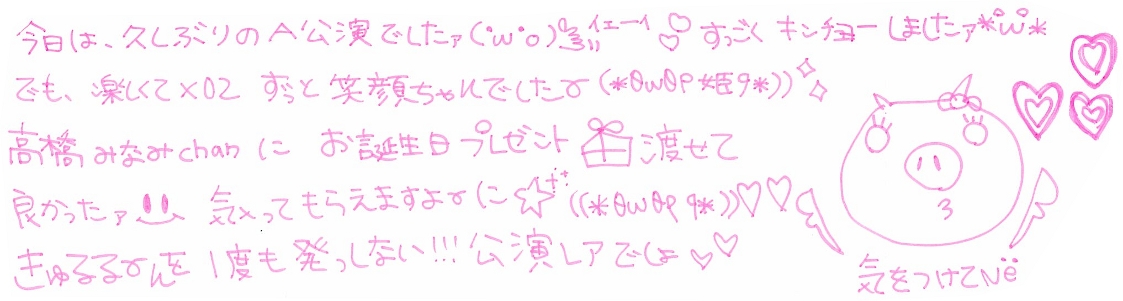 今日は、久しぶりのA公演でしたァ(°w°o)彡イェーイ♡すっごくキンチョーしましたァ*°w°*
でも、楽しくて×02 ずっと笑顔ちゃんでしたr(*θwθP姫q*))
高橋みなみchanに お誕生日プレゼント渡せて
良かったァ 気に入ってもらえますよrに☆((*θwθP q*))♡♡
きゅるるrんを1度も発っしない!!!公演レアでしょ♡♡
気をつけてNë